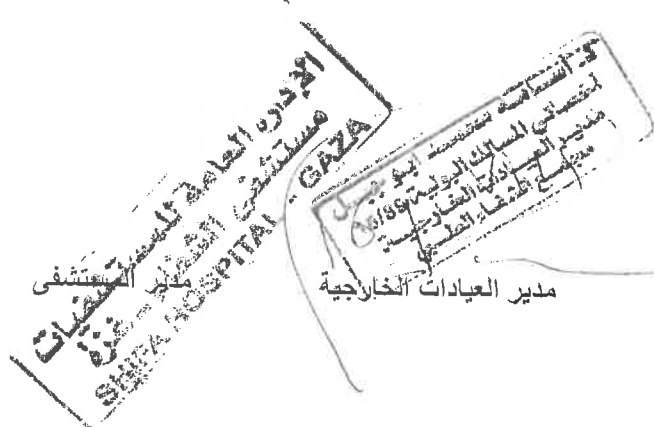 الإدارة العامة للمستشفيات
مستشفى الشفاء - غزة
SHIFA HOSPITAL - GAZA
أخصائي المسالك البولية
مدير العيادات الخارجية
مجمع الشفاء الطبي
مدير العيادات الخارجية
مدير المستشفى